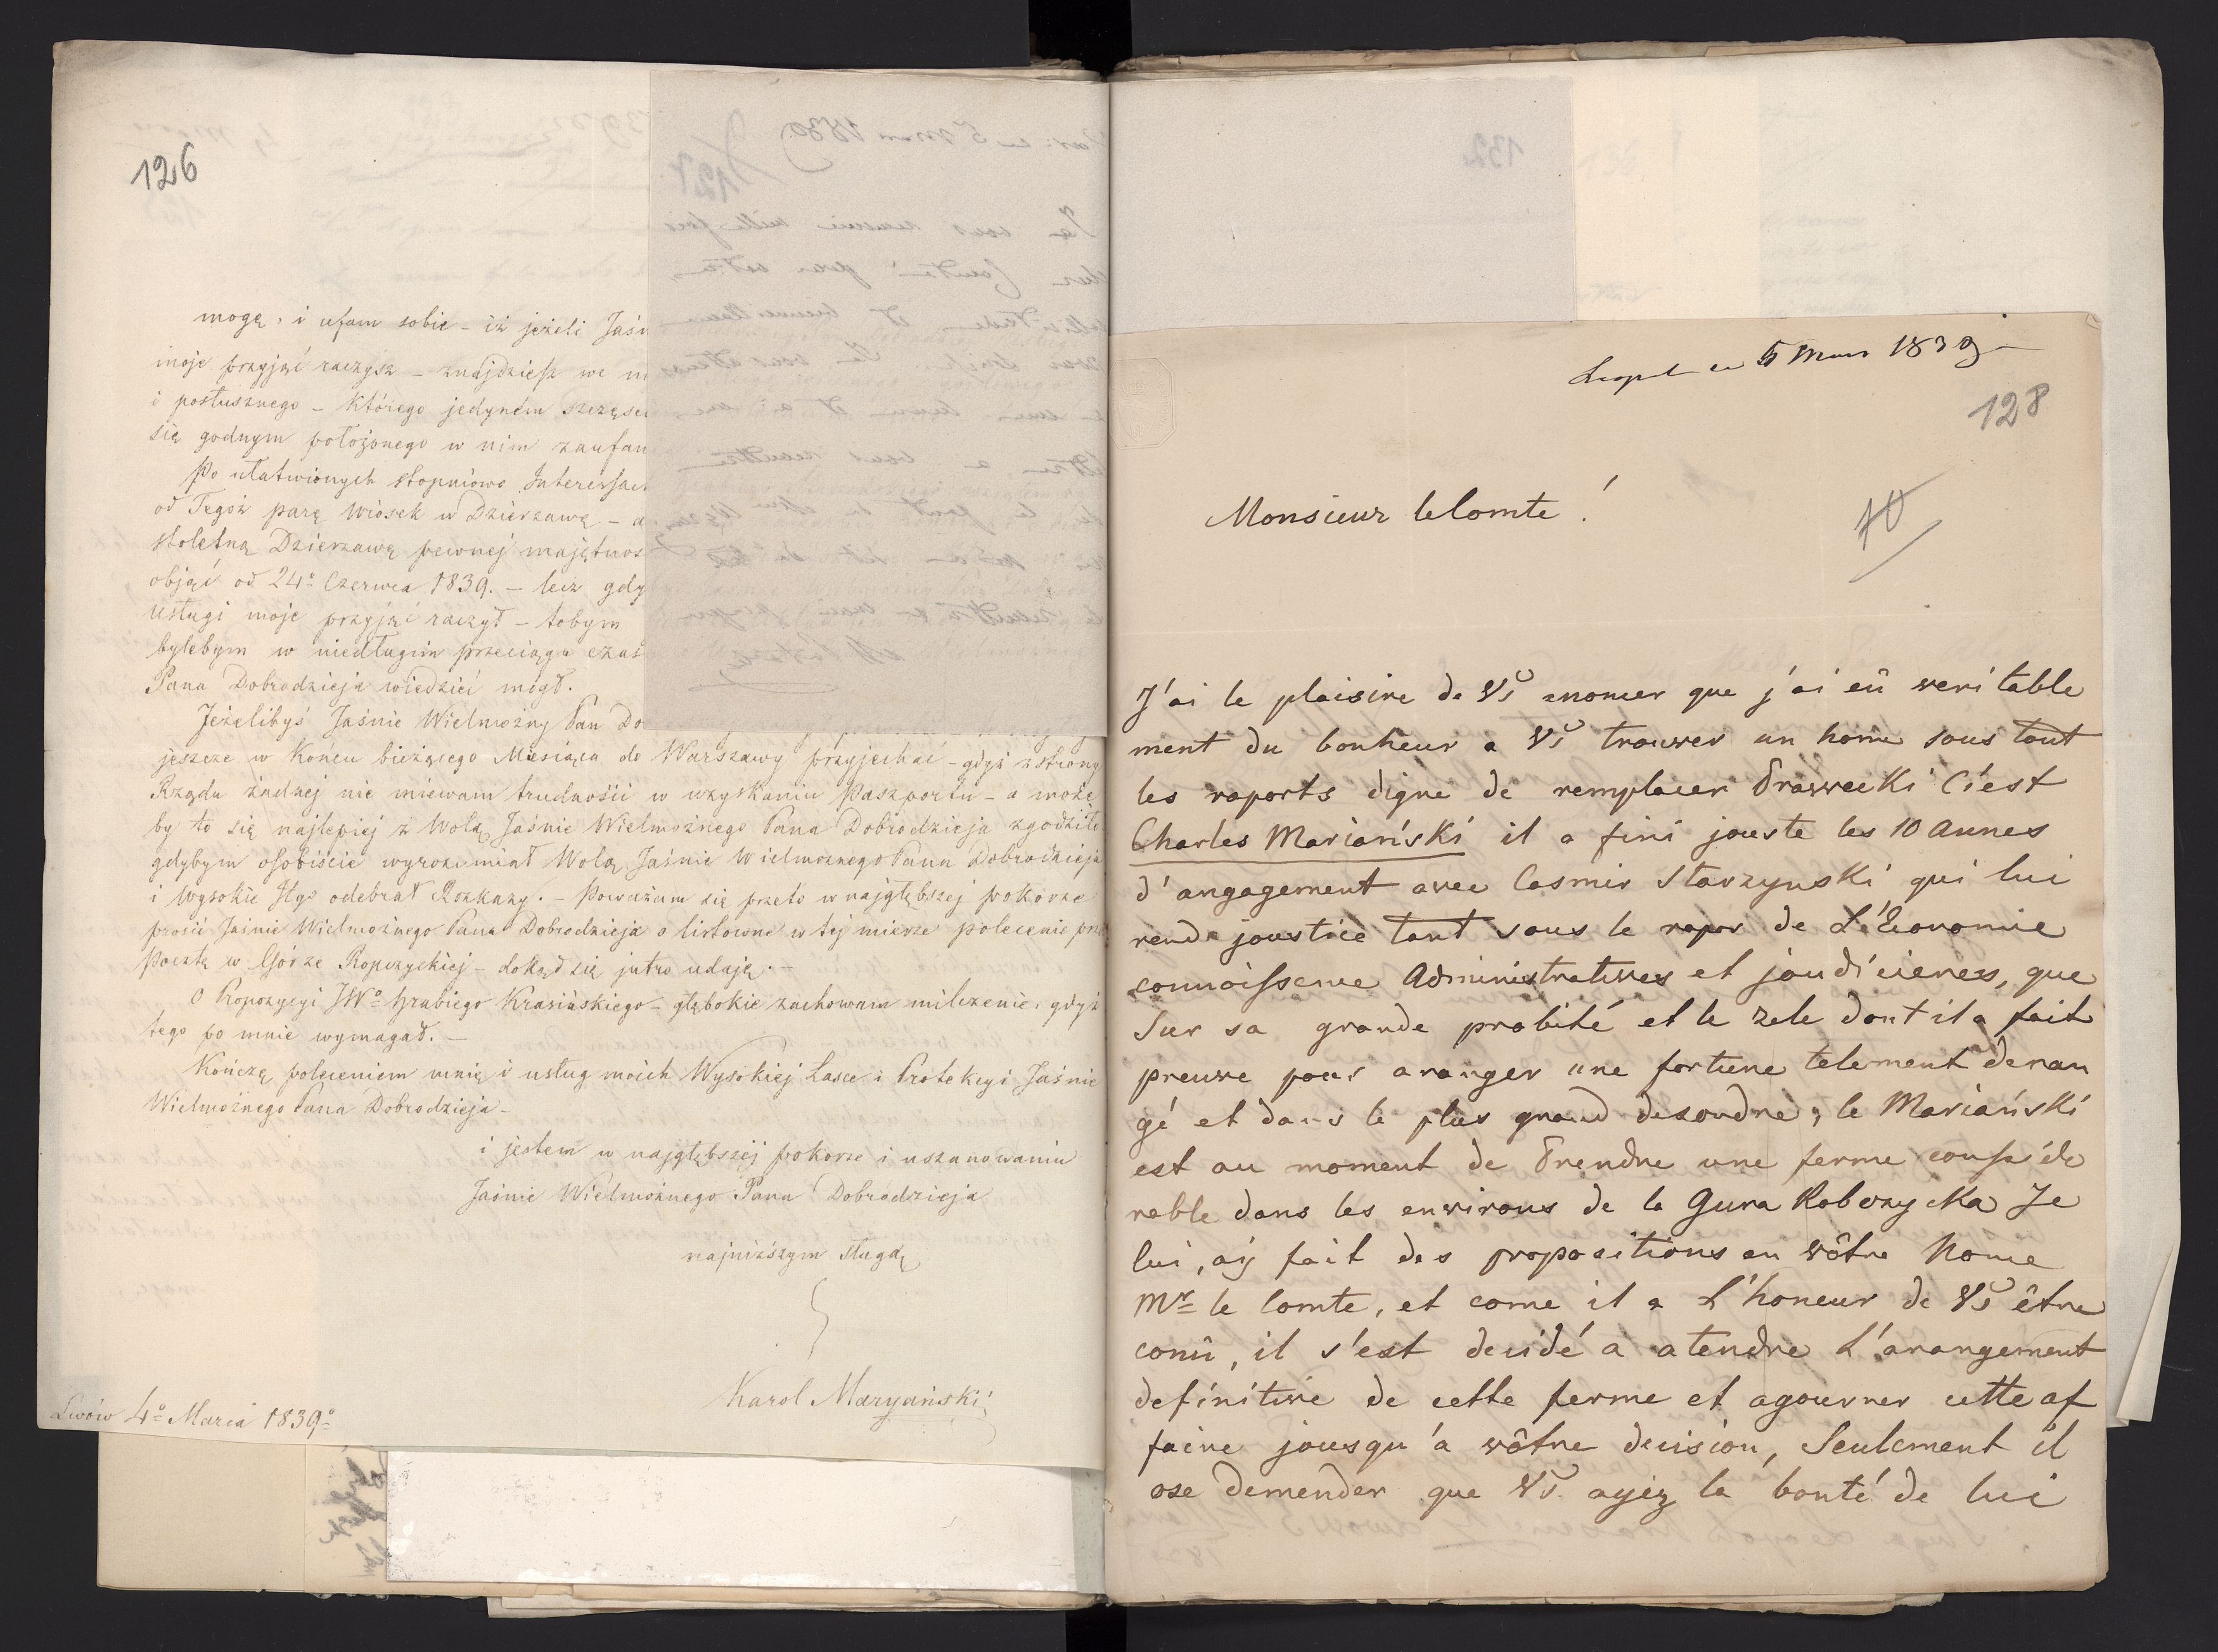 126
mogę, i ufam sobie – iż jeżeli Jaśn
moje przyjąć raczysz – znajdziesz we m
i posłusznego – którego jedyném szczęści
się godnym położonego w nim zaufan
Po ułatwionych stopniowo Interessach
od Tegoż parę wiosek w Dzierzawę – a
stoletną Dzierzawę pewnej majętnos
objąć od 24º Czerwca 1839. – lecz gdy
usługi moje przyjąć raczył – tobym
bylebym w niedługim przeciągu czas
Pana Dobrodzieja wiedzieć mógł.
Jeżelibyś Jaśnie Wielmożny Pan Do
jeszcze w Końcu bieżącego Miesiąca do Warszawy przyjechać – gdyż z strony
Rządu żadnej nie miewam trudności w uzyskaniu Paszportu – a może
by to się najlepiej z Wolą Jaśnie Wielmożnego Pana Dobrodzieja zgodziło
gdybym osobiście wyrozumiał Wolę Jaśnie Wielmożnego Pana Dobrodzieja
i Wysokie Jego odebrał Rozkazy. – Poważam się przeto w najgłębszej pokorze
prosić Jaśnie Wielmożnego Pana Dobrodzieja o listowne w tej mierze polecenie prze
Pocztę w Górze Ropczyckiej – dokąd się jutro udaję. –
O Propozycyi JWº Hrabiego Krasińskiego – głębokie zachowam milczenie, gdyż
tego po mnie wymagał. –
Kończę poleceniem mnię i usług moich Wysokiej Łasce i Protekcyi Jaśnie
Wielmożnego Pana Dobrodzieja –
i jestem w najgłębszej pokorze i uszanowaniu
Jaśnie Wielmożnego Pana Dobrodzieja
najniższym sługą
Karol Maryański
Lwów 4º Marca 1839º
Leopol ce 5 Mars 1839
128
70
Monsieur le Comte!
J'ai le plaisire de Vs anoncer que j'ai eû veritable
ment du bonheur a Vs trouver un home sous tout
les raports digne de remplacer Drawecki C'est
Charles Mariański il a fini jouste les 10 Annes
d'angagement avec Casmir Starzynski qui lui
rende joustice tant sous le rapor de L'Economie
connoissence Administratives et joudicieres, que
sur sa grande probité et le zele dont il a fait
preuve pour aranger une fortune telement deran
gé et dans le plus grand desordre, le Mariański
est au moment de Prendre une ferme consside
rable dans les environs de la Gura Robczycka Je
lui, aij fait des propositions au vôtre Nome
Mr le Comte, et come il a L'honeur de Vs être
conû, il s'est decidé a atendre L'arangement
definitive de cette ferme et agourner cette af
faire jousqu'a vôtre decision, Seulement il
ose demender que Vs ayez la bonté de lui